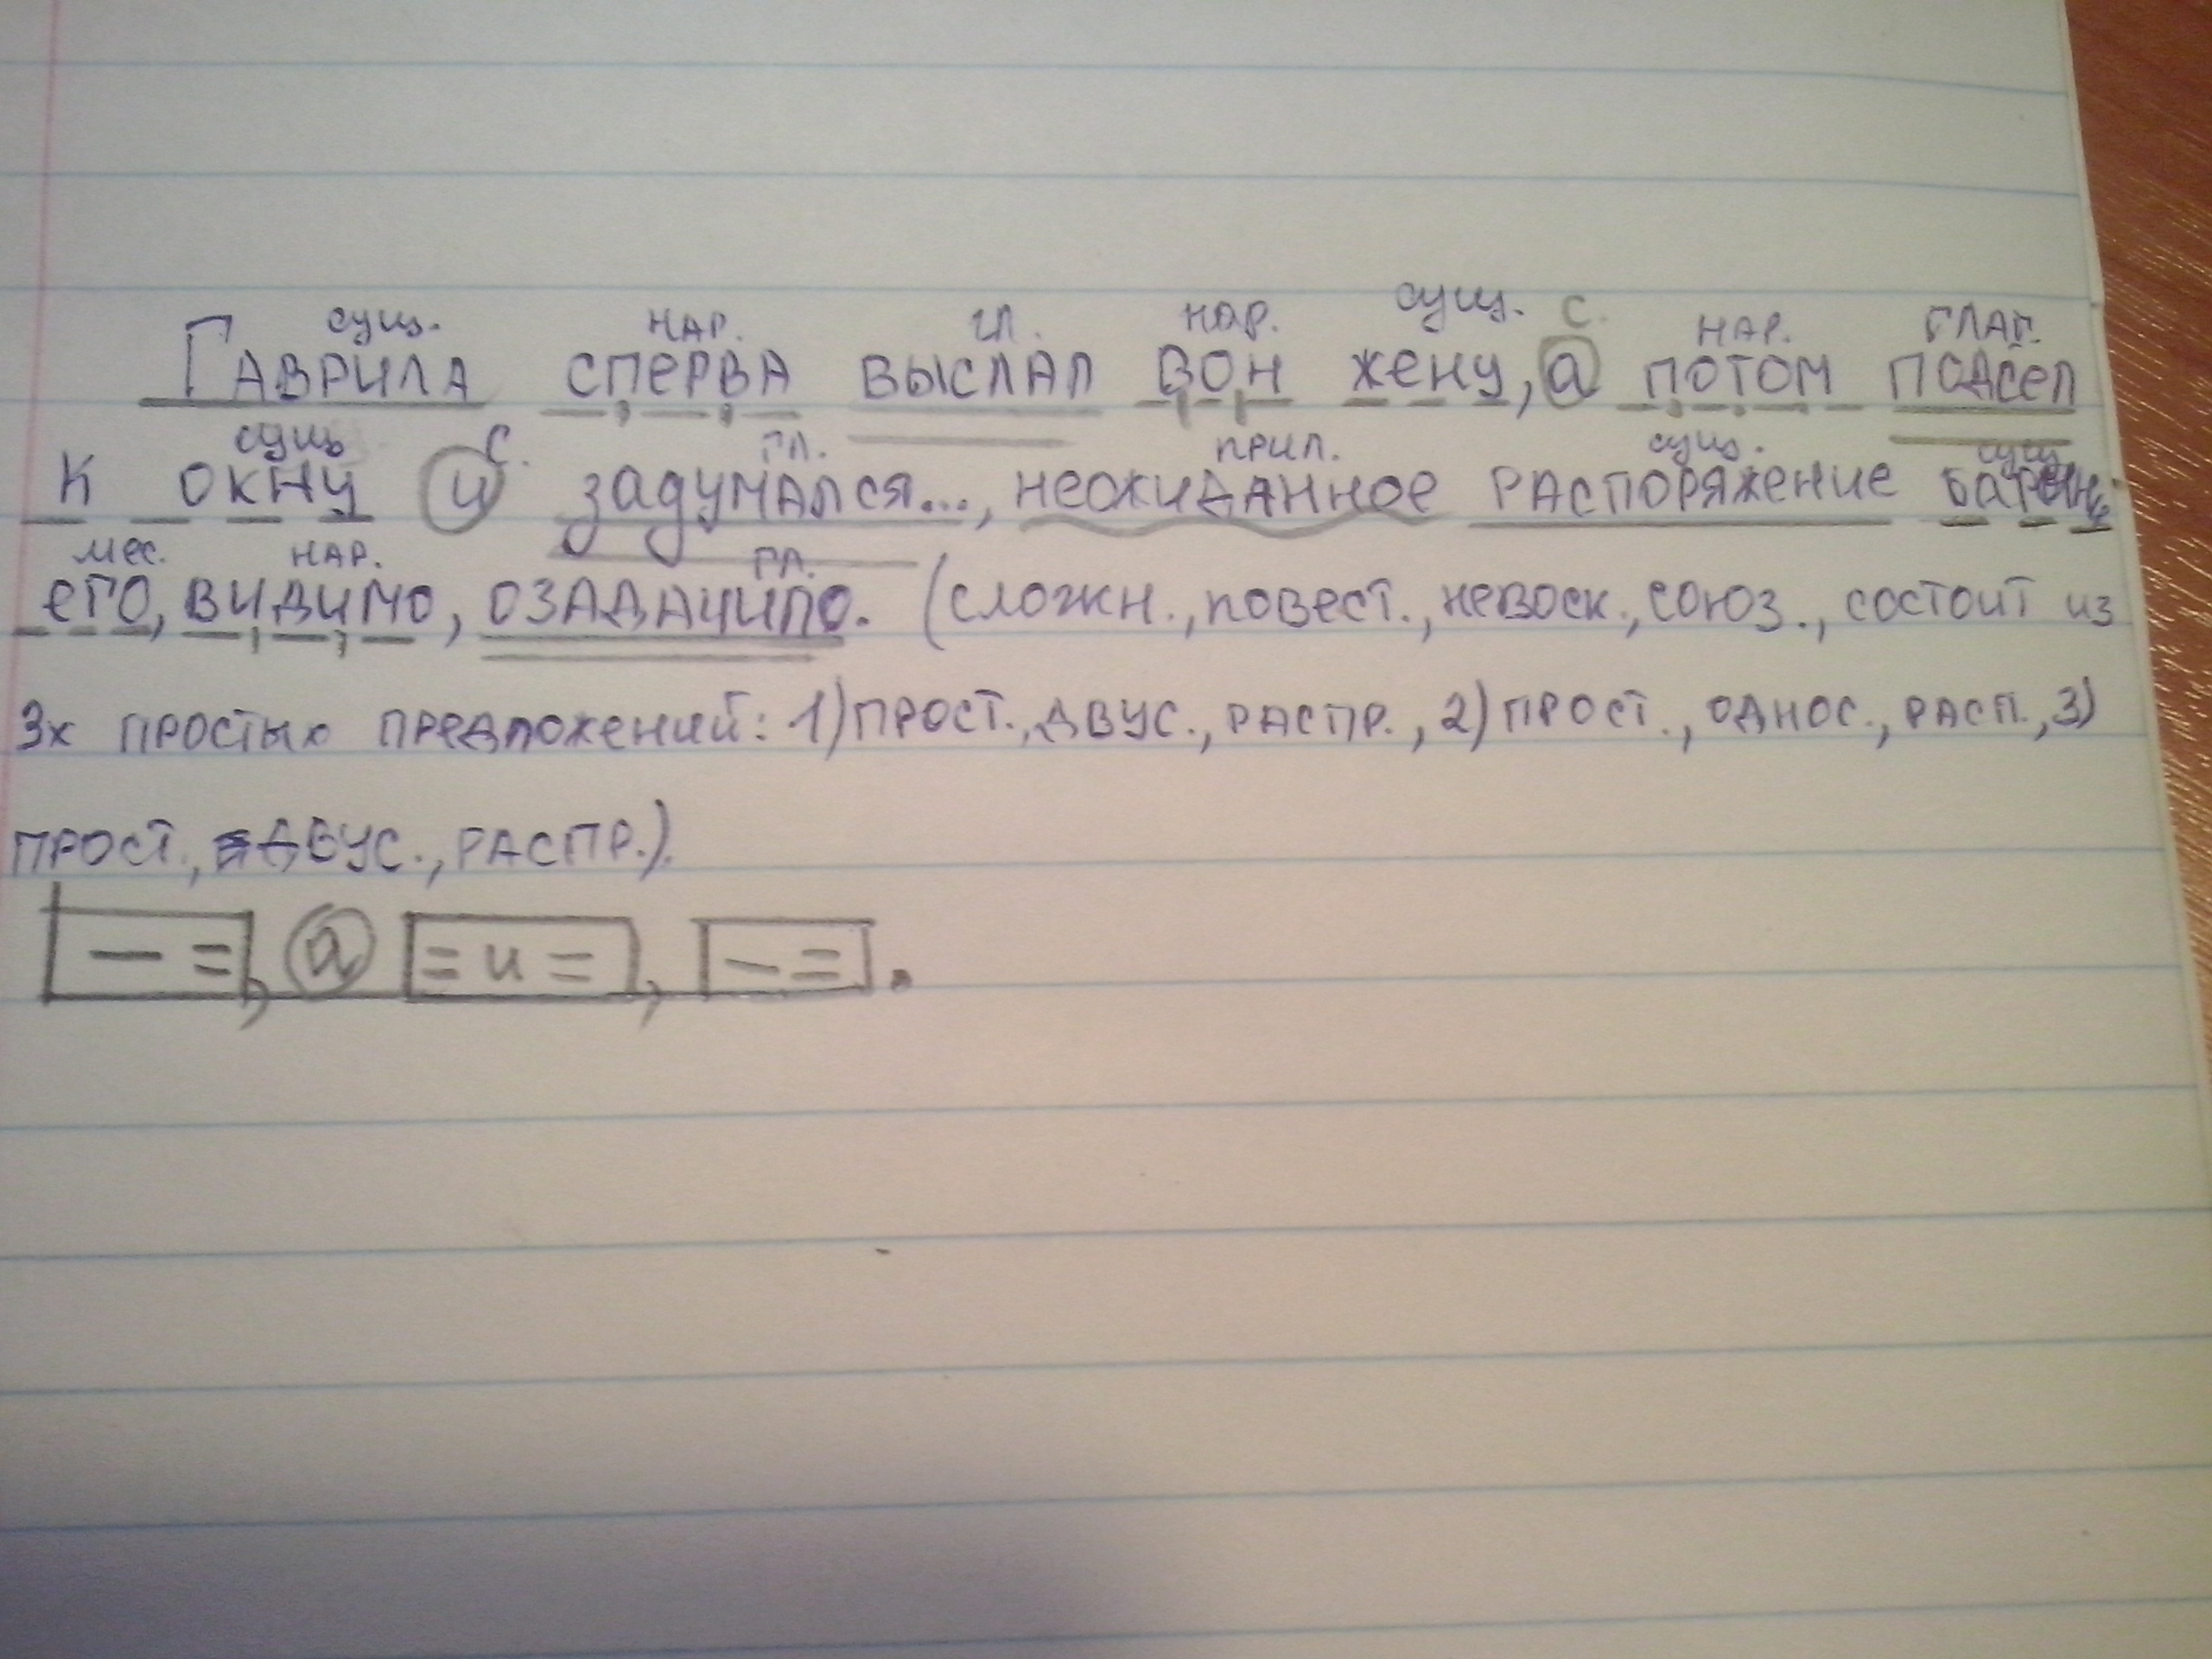 сущ. нар. гл. нар. сущ. с. нар. глаг.
Гаврила сперва выслал вон жену, а потом подсел
сущ с. гл. прил. сущ. сущ
к окну и задумался..., неожиданное распоряжение барыни
мес. нар. гл.
его, видимо, озадачило. (сложн., повест., невоск., союз., состоит из
3х простых предложений: 1) прост., двус., распр., 2) прост., однос., расп., 3)
прост., двус., распр.).
[— =], а [= и =], [— =].